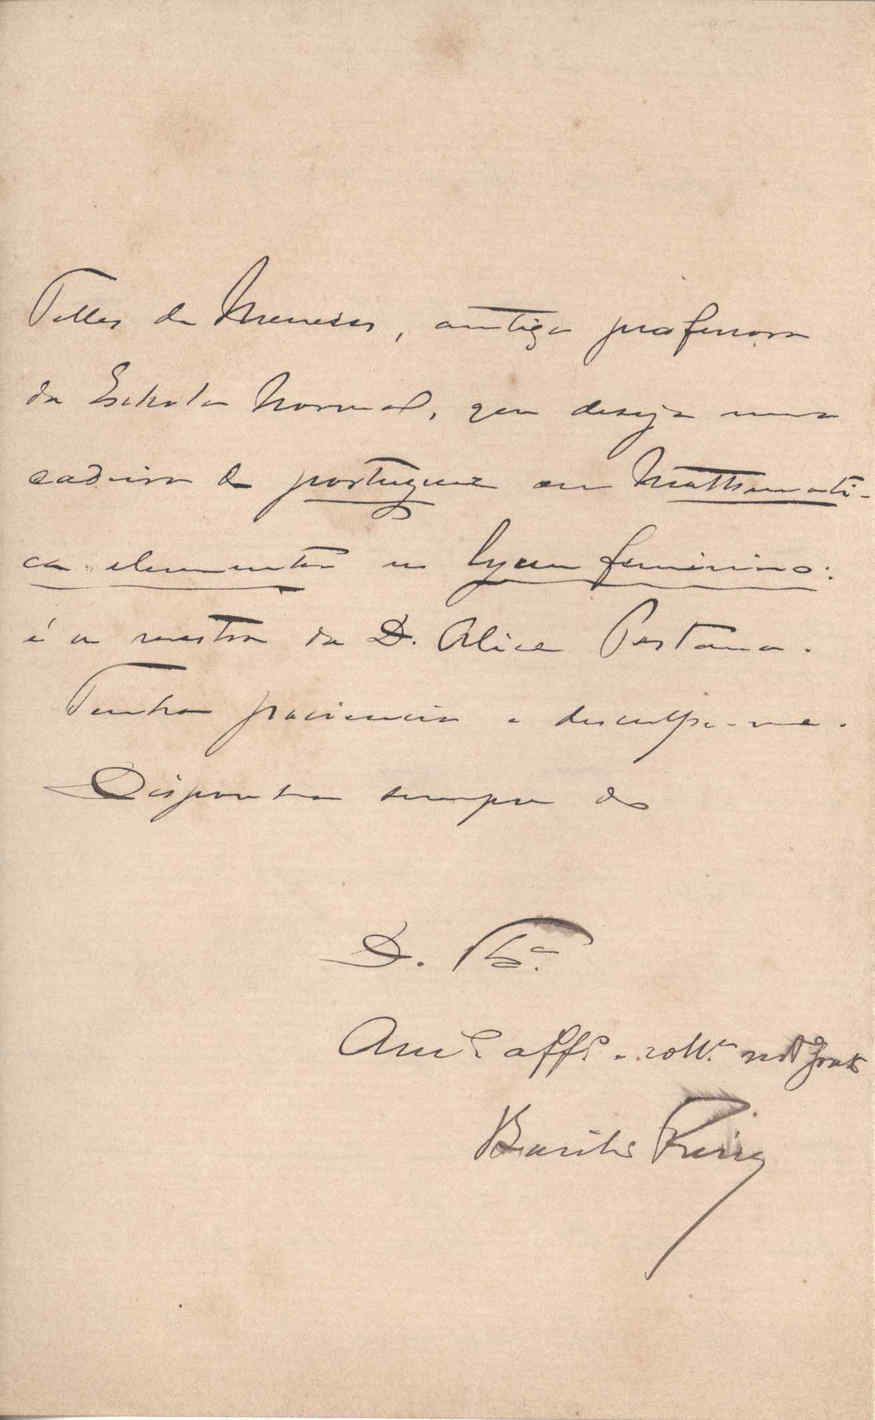 Telles de Menezes, antiga professora
da Eschola Normal, que deseja uma
cadeira de portuguez ou Mathemati-
ca elementar no lyceu feminino:
é a mestra da D. Alice Pestana.
Tenha paciencia e desculpe-me.
Disponha sempre do
D. V. Exª
Amº affº e collª